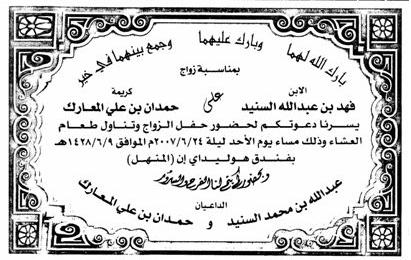 بارك الله لهما وبارك عليهما وجمع بينهما في خير
بمناسبة زواج
الابن على كريمة
فهد بن عبدالله السنيد حمدان بن علي المعارك
يسرنا دعوتكم لحضور حفل الزواج وتناول طعام
العشاء وذلك مساء يوم الأحد ليلة ٢٠٠٧/٦/٢٤م الموافق ١٤٢٨/٦/٩هـ
بفندق هوليداي إن (المنهل)
وبحضوركم يتم لنا الفرح والسرور
الداعيان
عبدالله بن محمد السنيد و حمدان بن علي المعارك